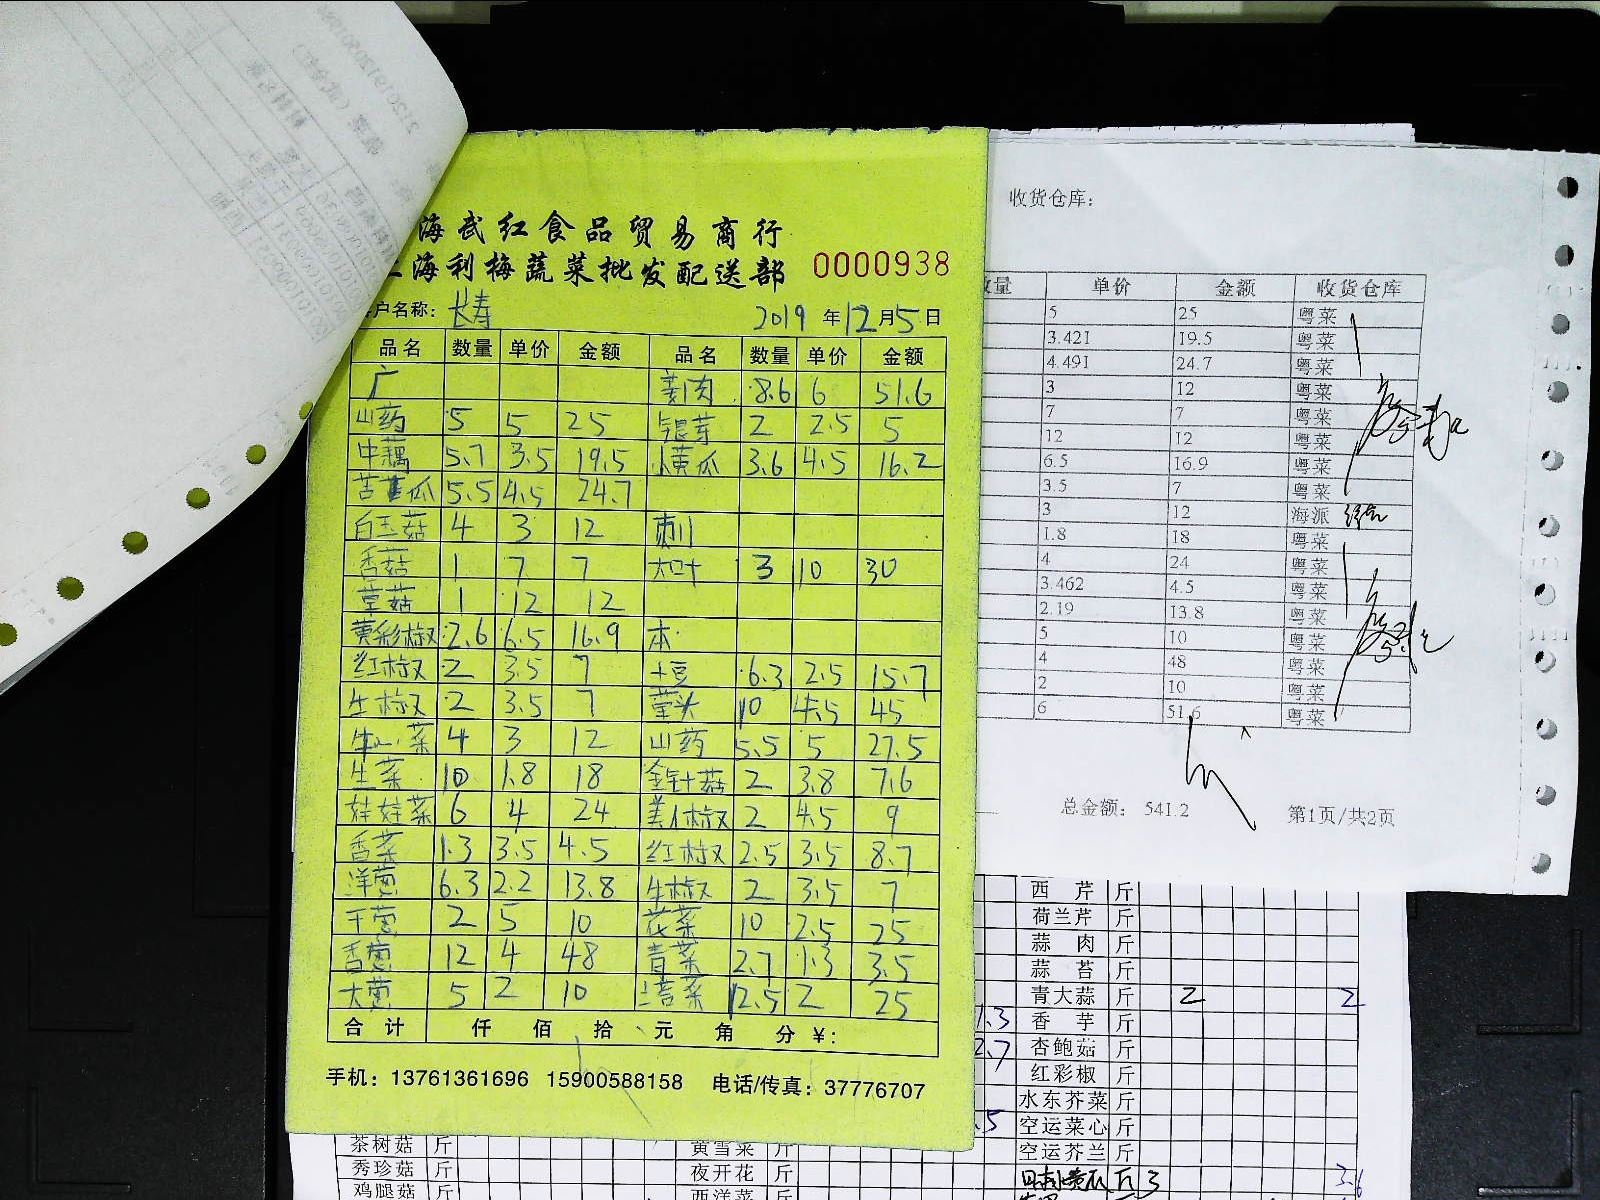 海武红食品贸易商行
上海利梅蔬菜批发配送部 0000938
户名称: 长寿 2019 年 12 月 5 日
品名 数量 单价 金额 品名 数量 单价 金额
广 姜肉 8.6 6 51.6
山药 5 5 25 银芽 2 2.5 5
中藕 5.7 3.5 19.5 小黄瓜 3.6 4.5 16.2
苦瓜 5.5 4.5 24.7
白玉菇 4 3 12 刺
香菇 1 7 7 大叶 3 10 30
草菇 1 12 12
黄彩椒 2.6 6.5 16.9 本
红椒 2 3.5 7 土豆 6.3 2.5 15.7
生椒 2 3.5 7 10 4.5 45
菜 4 3 12 山药 5.5 5 27.5
生菜 10 1.8 18 金针菇 2 3.8 7.6
娃娃菜 6 4 24 美人椒 2 4.5 9
香菜 1.3 3.5 4.5 红椒 2.5 3.5 8.7
洋葱 6.3 2.2 13.8 生椒 2 3.5 7
干葱 2 5 10 花菜 10 2.5 25
香葱 12 4 48 青菜 2.7 1.3 3.5
大葱 5 2 10 12.5 2 25
合计 仟 佰 拾 元 角 分 ¥:
手机: 13761361696 15900588158 电话/传真: 37776707
收货仓库:
量 单价 金额 收货仓库
5 25 粤菜
3.421 19.5 粤菜
4.491 24.7 粤菜
3 12 粤菜
7 7 粤菜
12 12 粤菜
6.5 16.9 粤菜
3.5 7 粤菜
3 12 海派
1.8 18 粤菜
4 24 粤菜
3.462 4.5 粤菜
2.19 13.8 粤菜
5 10 粤菜
4 48 粤菜
2 10 粤菜
6 51.6 粤菜
总金额: 541.2 第1页/共2页
西芹 斤
荷兰芹 斤
蒜肉 斤
蒜苔 斤
青大蒜 斤 2 2
1.3 香芋 斤
2.7 杏鲍菇 斤
红彩椒 斤
水东芥菜 斤
.5 空运菜心 斤
茶树菇 斤 黄雪菜 斤 空运芥兰 斤
秀珍菇 斤 夜开花 斤 斤 3 3.6
鸡腿菇 斤 西洋菜 斤